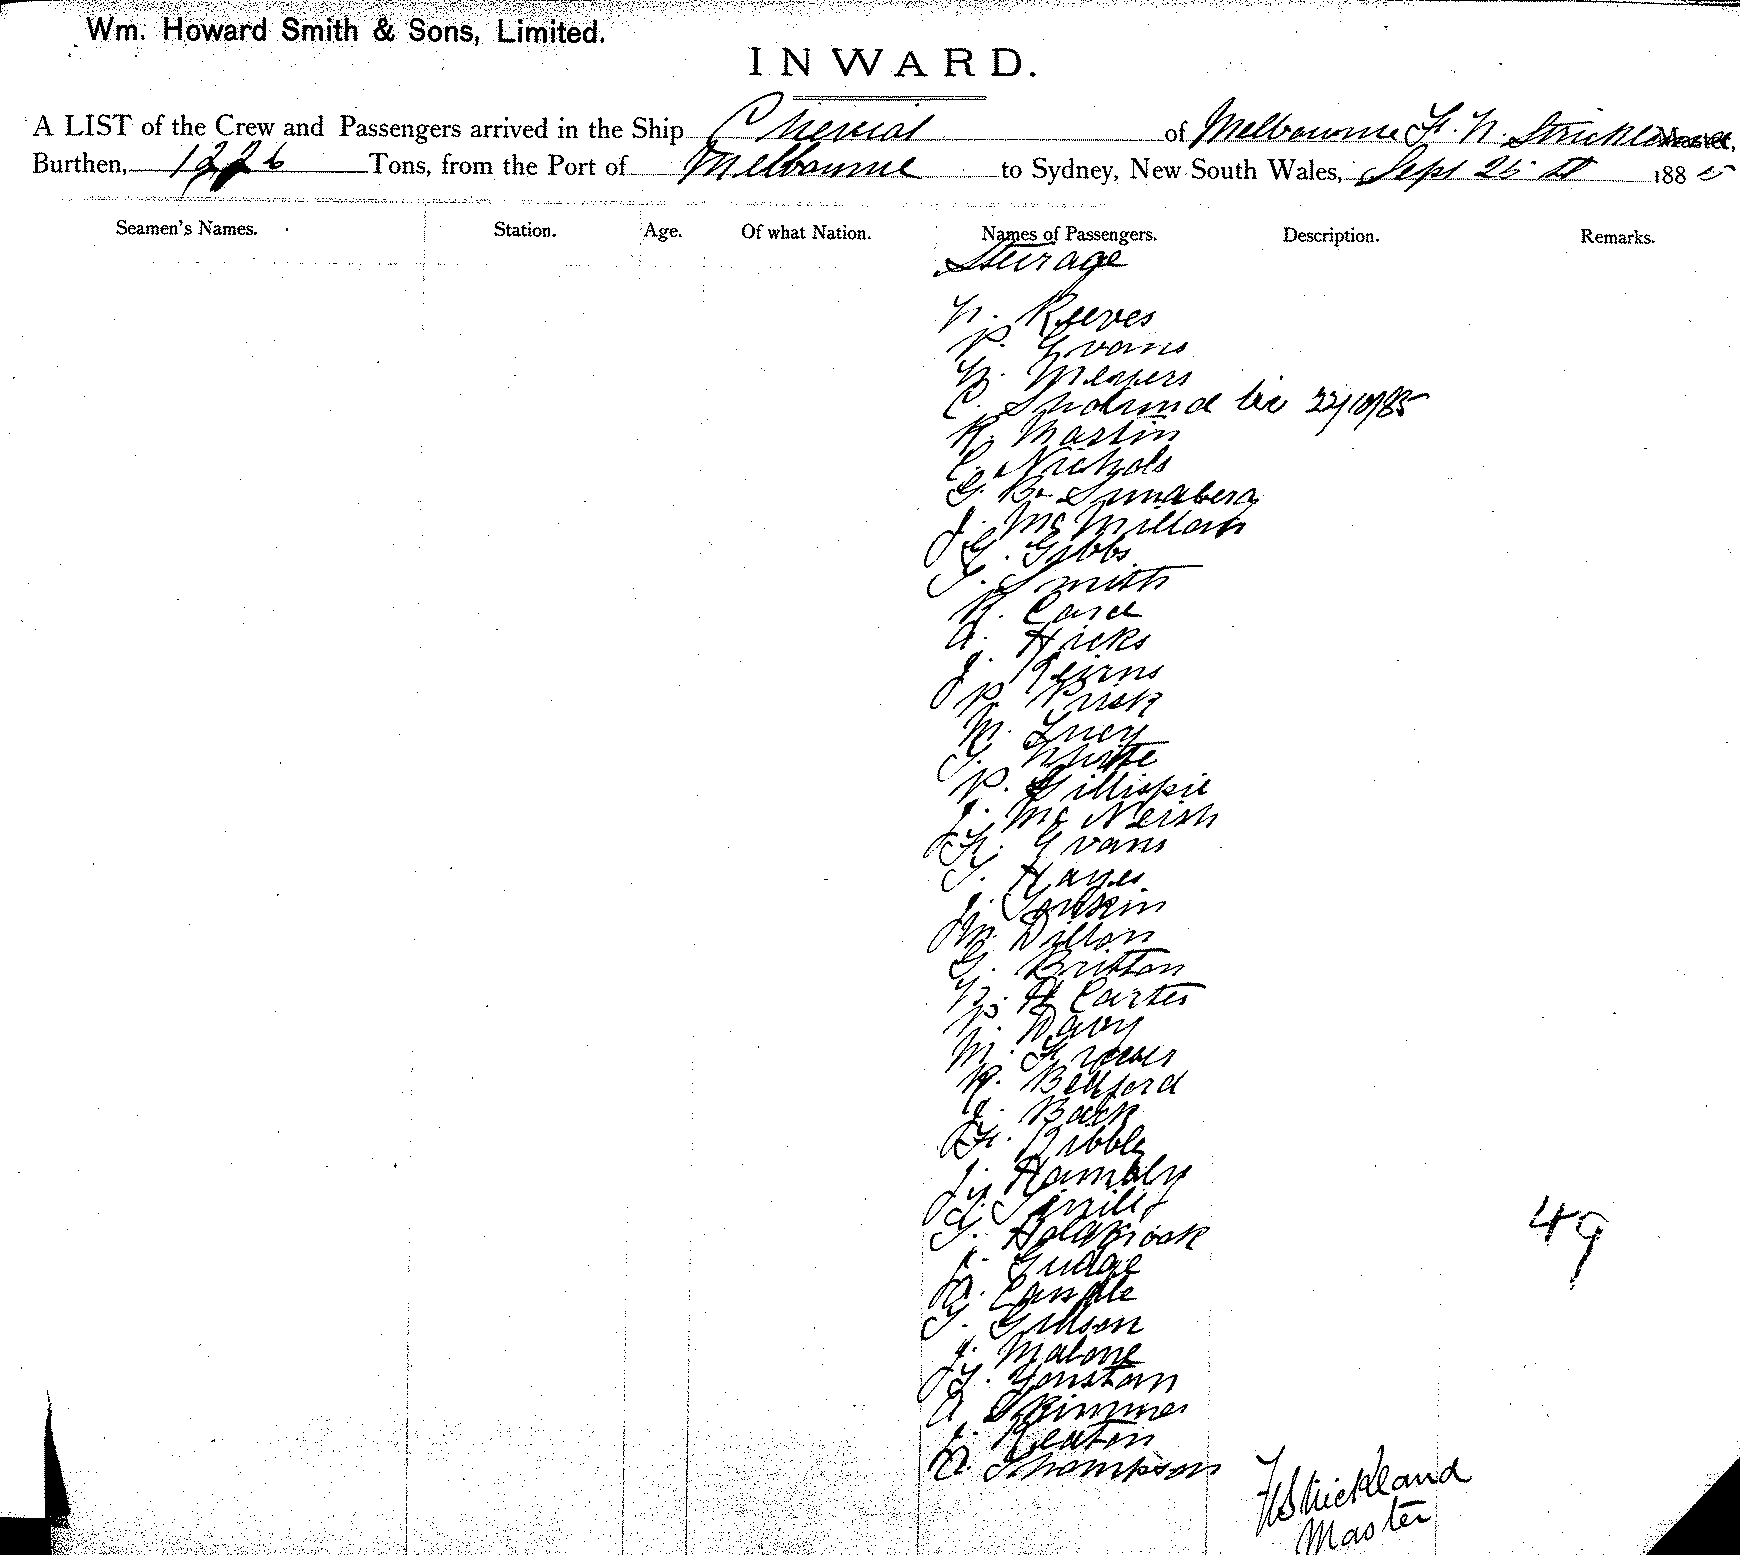 Wm. Howard Smith & Sons, Limited.
INWARD.
A LIST of the Crew and Passengers arrived in the Ship Cheviot of Melbourne F. W. Strickland Master,
Burthen, 1226 Tons, from the Port of Melbourne to Sydney, New South Wales, Sept 1885
Seamen's Names. Station. Age. Of what Nation. Names of Passengers. Description. Remarks.
Steirage
W. Reeves
P. Evans
W. Meyers
C. 22/10/85
R. Martin
C. Nichols
G. B.
J. McMillan
G. Gibbs
T. Smith
R.
A. Hicks
J. Keirns
P. Prisk
M. Lucy
T. White
P. Gillispie
J. McNeish
F. Evans
T. Hayes
J.
M. Dillon
G. Britton
W. H Carter
W. Davy
M.
R. Bedford
J. Back
F. Kibbly
J. Hambly
T.
T. Holdbrook
J. Judge
A.
T. Gibson
J. Malone
T.
A Skimmer
J. Keaton
A. Thompson
49
FW Strickland
Master